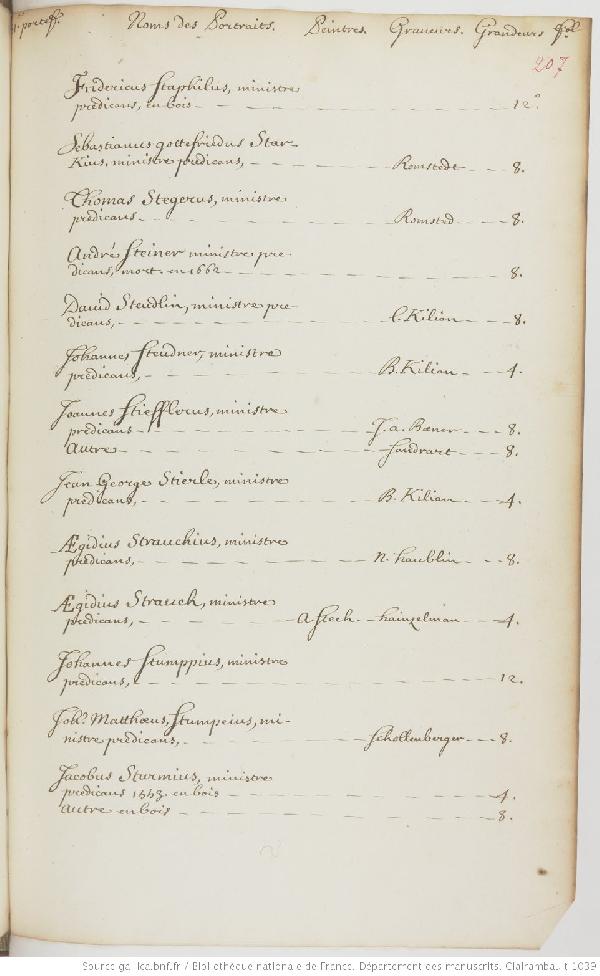 portef. Noms des Portraits. Peintres. Graveurs. Grandeurs fol.
207
Fridericus Staphilus, ministre
predicans, en bois 12°.
Sebastianus gottefridus Star
Kius, ministre predicans, Romstedt 8.
Thomas Stegerus, ministre
predicans Romsted 8.
André Steiner ministre pre-
dicans, mort en 1662 8.
David Steudlin, ministre pre
dicans, C. Kilian 8.
Johannes Steudner, ministre
predicans, B. Kilian 4.
Joannes Stiefflerus, ministre
predicans J. a. Boener 8.
Autre Sandrart 8.
Jean George Stierle, ministre
predicans, B. Kilian 4.
Ægidius Strauchius, ministre
predicans, n. haublin 8.
Ægidius Strauch, ministre
predicans, A Stech hainzelman 4.
Johannes Stumppius, ministre
predicans, 12.
Joh. Matthæus, Stumpeius, mi-
nistre predicans, Schollenberger 8.
Jacobus Sturmius, ministre
predicans 1553. en bois 4.
autre en bois 8.
Source gallica.bnf.fr / Bibliothèque nationale de France. Département des manuscrits. Clairambault 1039